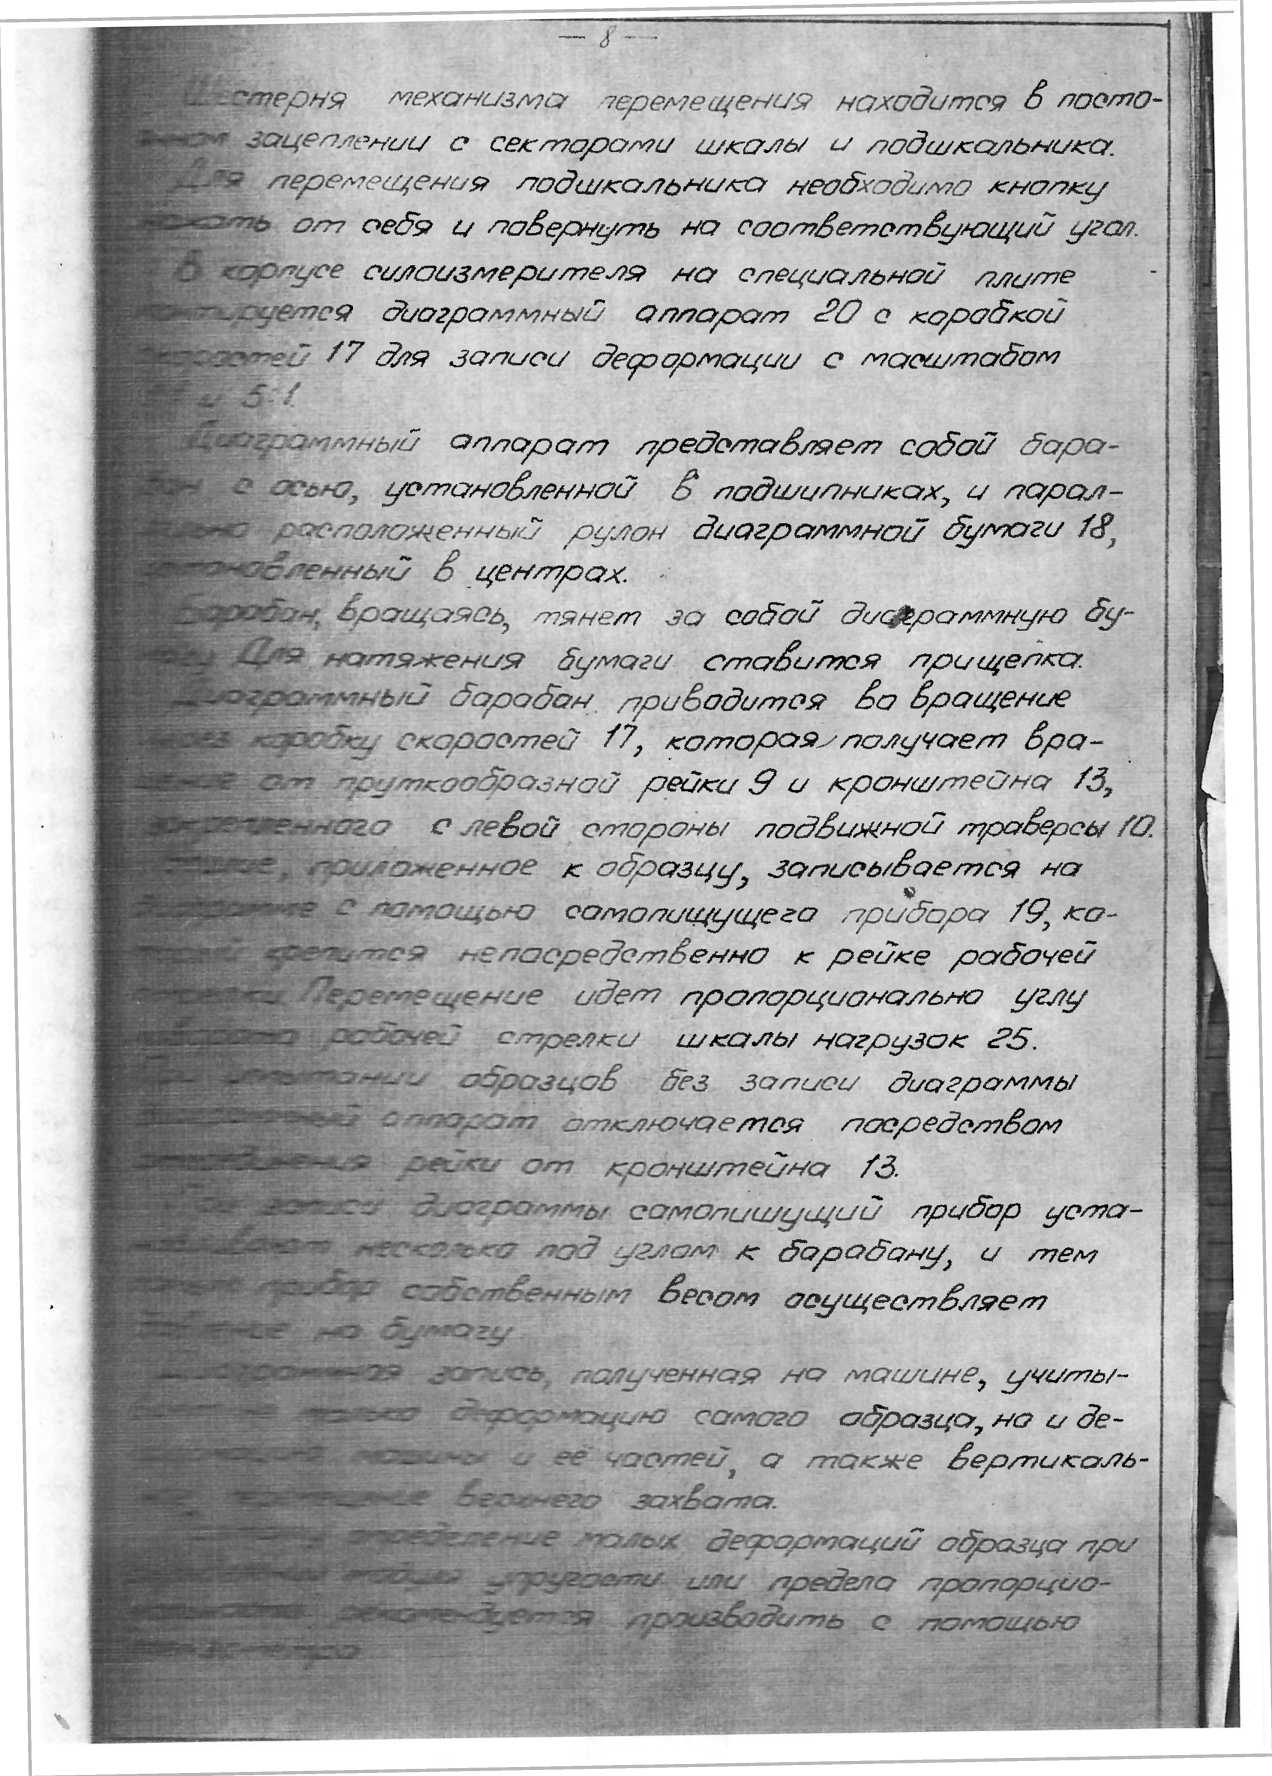 — 8 —
Шестерня механизма перемещения находится в посто-
янном зацеплении с секторами шкалы и подшкальника.
Для перемещения подшкальника необходимо кнопку
нажать от себя и повернуть на соответствующий угол.
В корпусе силоизмерителя на специальной плите
монтируется диаграммный аппарат 20 с коробкой
скоростей 17 для записи деформации с масштабом
и 5:1.
Диаграммный аппарат представляет собой бара-
бан с осью, установленной в подшипниках, и парал-
лельно расположенный рулон диаграммной бумаги 18,
установленный в центрах.
Барабан, вращаясь, тянет за собой диаграммную бу-
магу. Для натяжения бумаги ставится прищепка.
Диаграммный барабан приводится во вращение
через коробку скоростей 17, которая получает вра-
щение от пруткообразной рейки 9 и кронштейна 13,
закрепленного с левой стороны подвижной траверсы 10.
Усилие, приложенное к образцу, записывается на
диаграмме с помощью самопищущего прибора 19, ко-
торый крепится непосредственно к рейке рабочей
стрелки. Перемещение идет пропорционально углу
поворота рабочей стрелки шкалы нагрузок 25.
испытании образцов без записи диаграммы
аппарат отключается посредством
отсоединения рейки от кронштейна 13.
При записи диаграммы самопишущий прибор уста-
навливают несколько под углом к барабану, и тем
самым прибор собственным весом осуществляет
на бумагу.
Диаграммная запись, полученная на машине, учиты-
только деформацию самого образца, но и де-
машины и её частей, а также вертикаль-
перемещение верхнего захвата.
определение малых деформаций образца при
модуля упругости или предела пропорцио-
нальности рекомендуется производить с помощью
тензометра